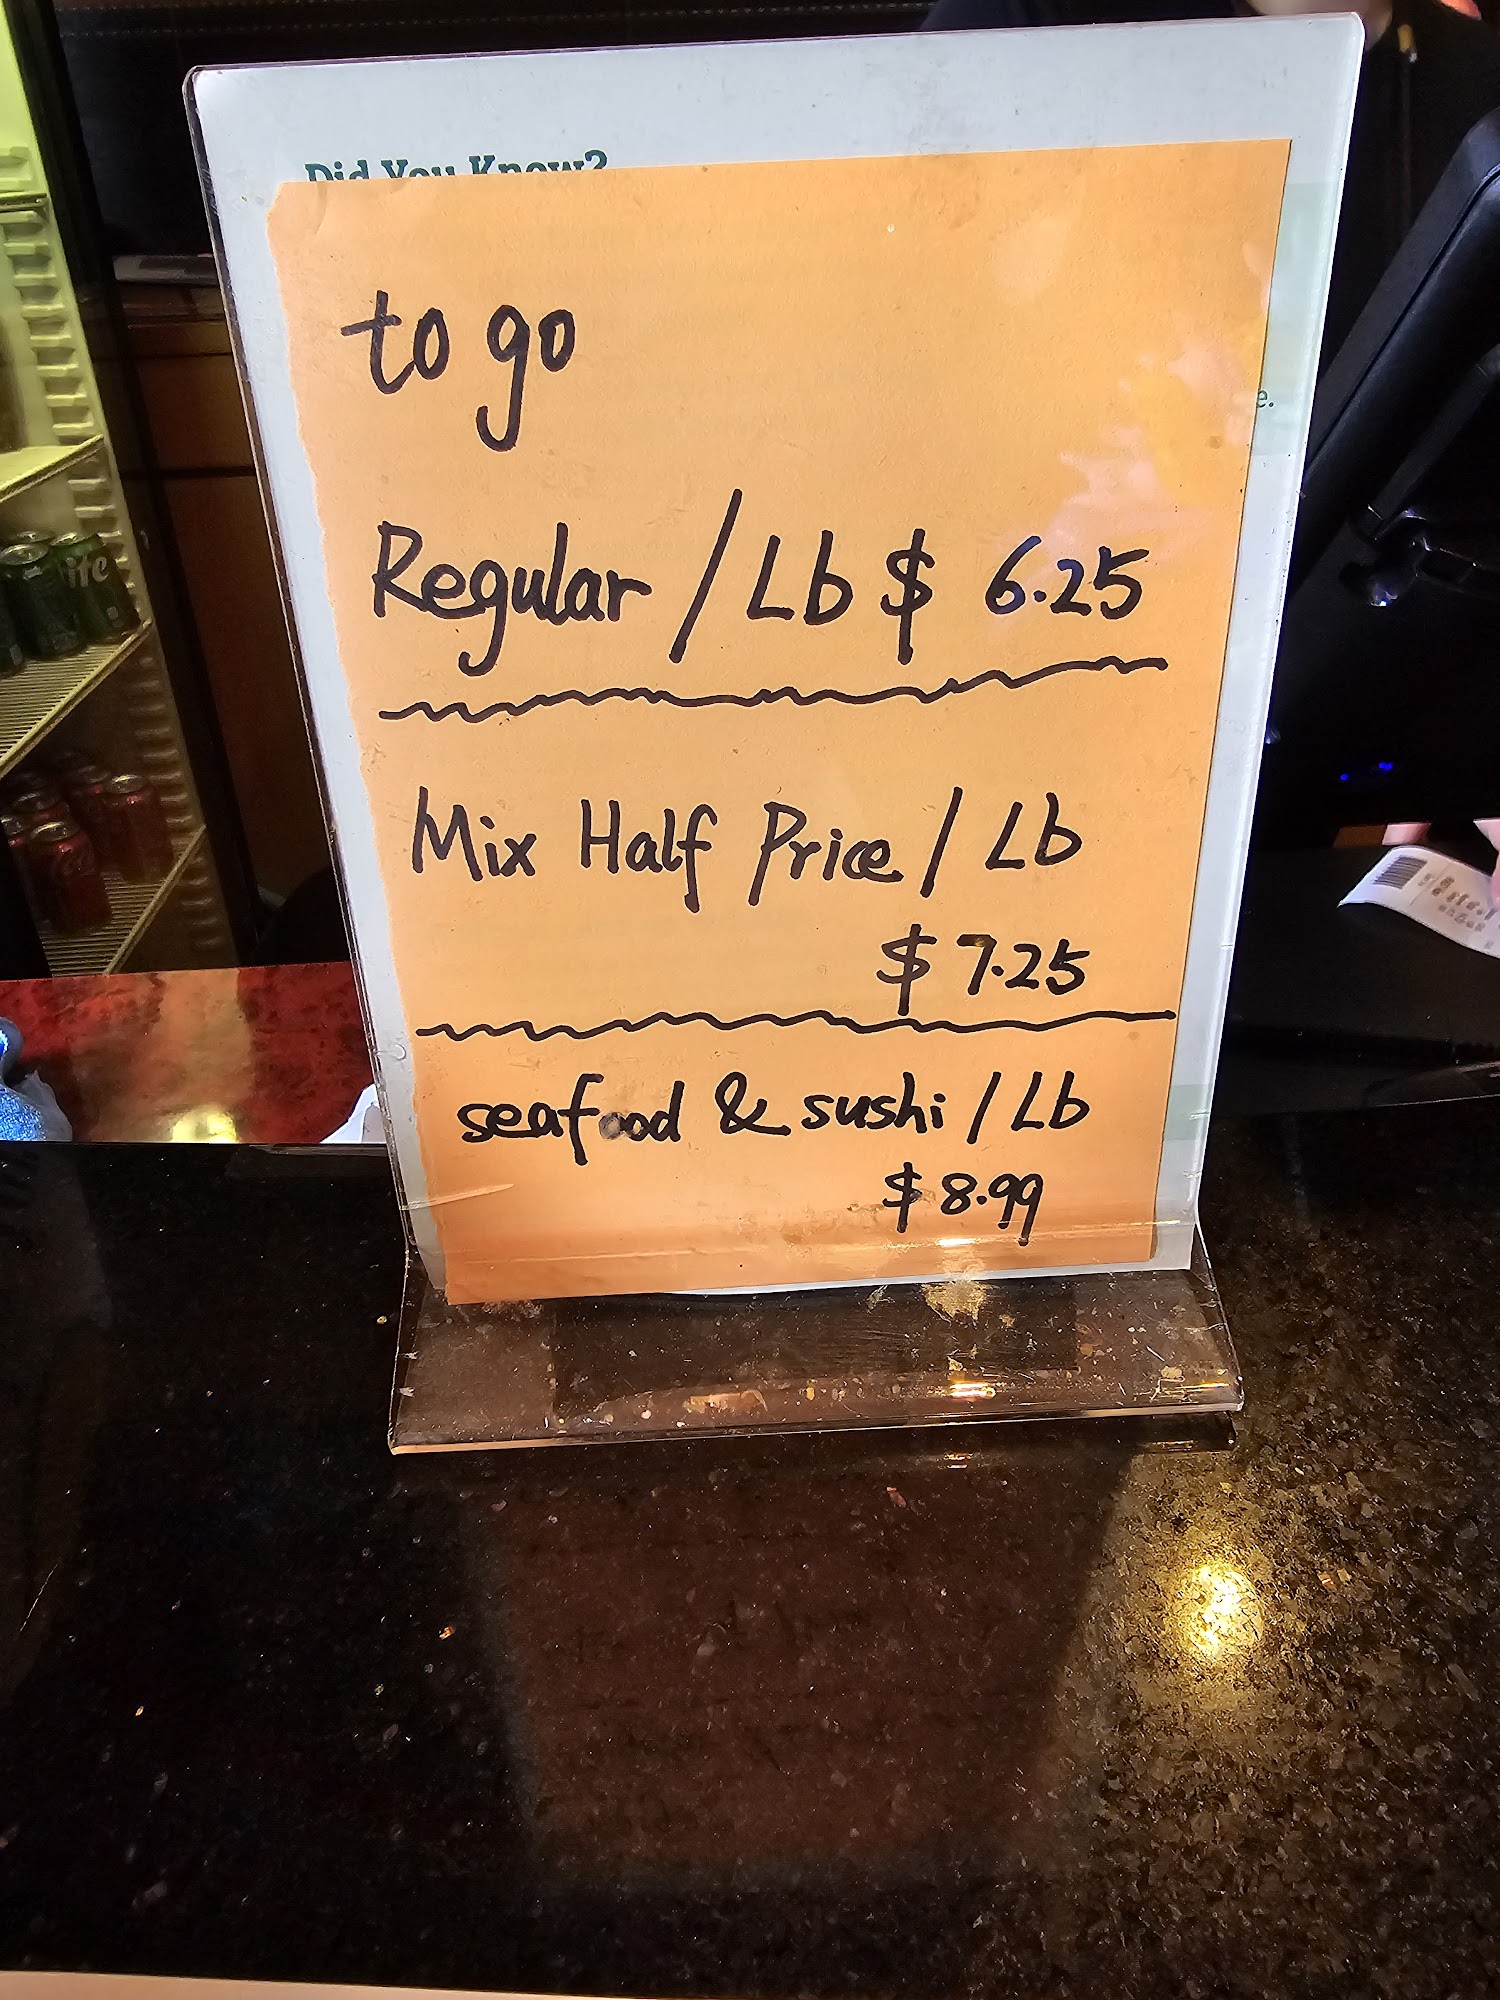 Did You Know?
e.
to go
Regular / Lb $ 6.25
Mix Half Price / Lb
$ 7.25
seafood & sushi / Lb
$ 8.99
ite